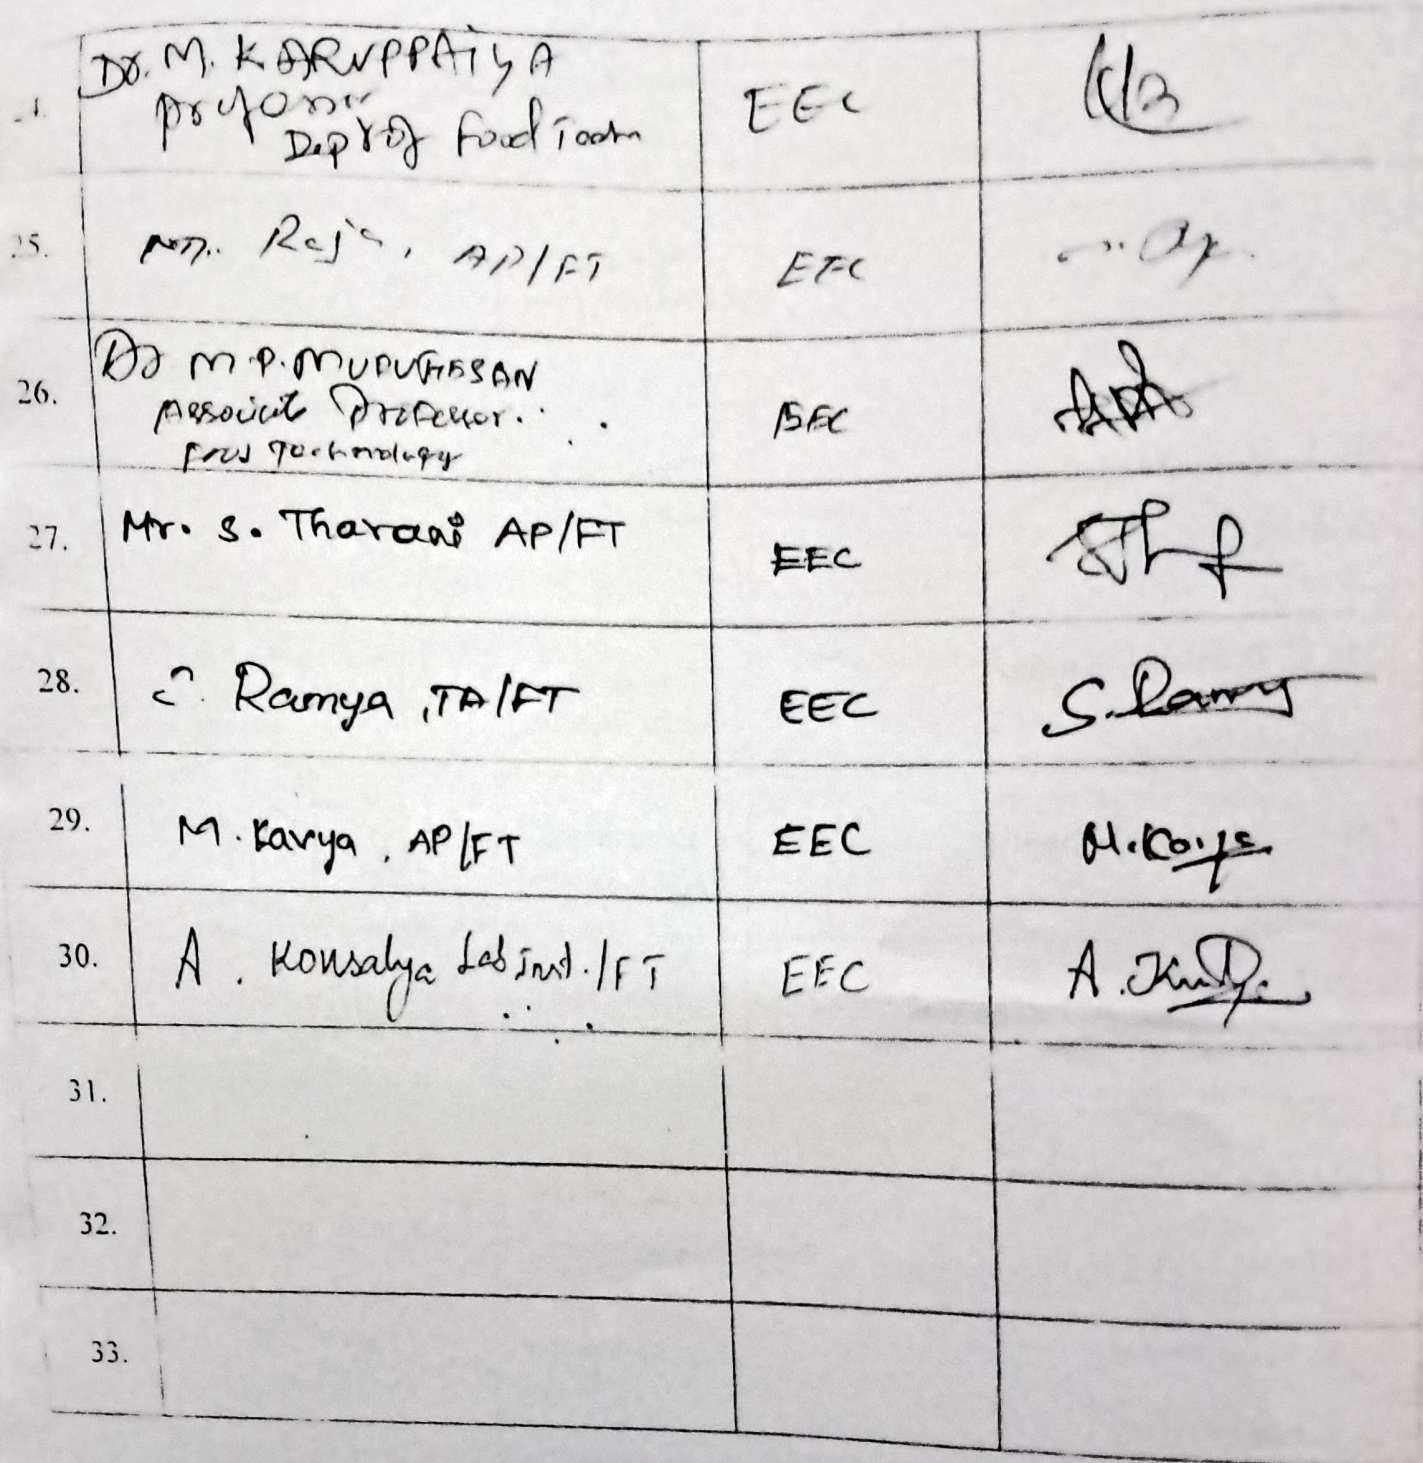 Dr. M. KARUPPAIYA EEC
Professor
Dept of Food Tech
25. Raja, AP/FT EEC
26. Dr M.P. MURUGESAN EEC
Associate Professor
Food Technology
27. Mr. S. Tharani AP/FT EEC
28. S. Ramya, TA/FT EEC S. Ramy
29. M. Kavya, AP/FT EEC M. Kavya
30. A. Kousalya Lab inst./FT EEC A.
31.
32.
33.